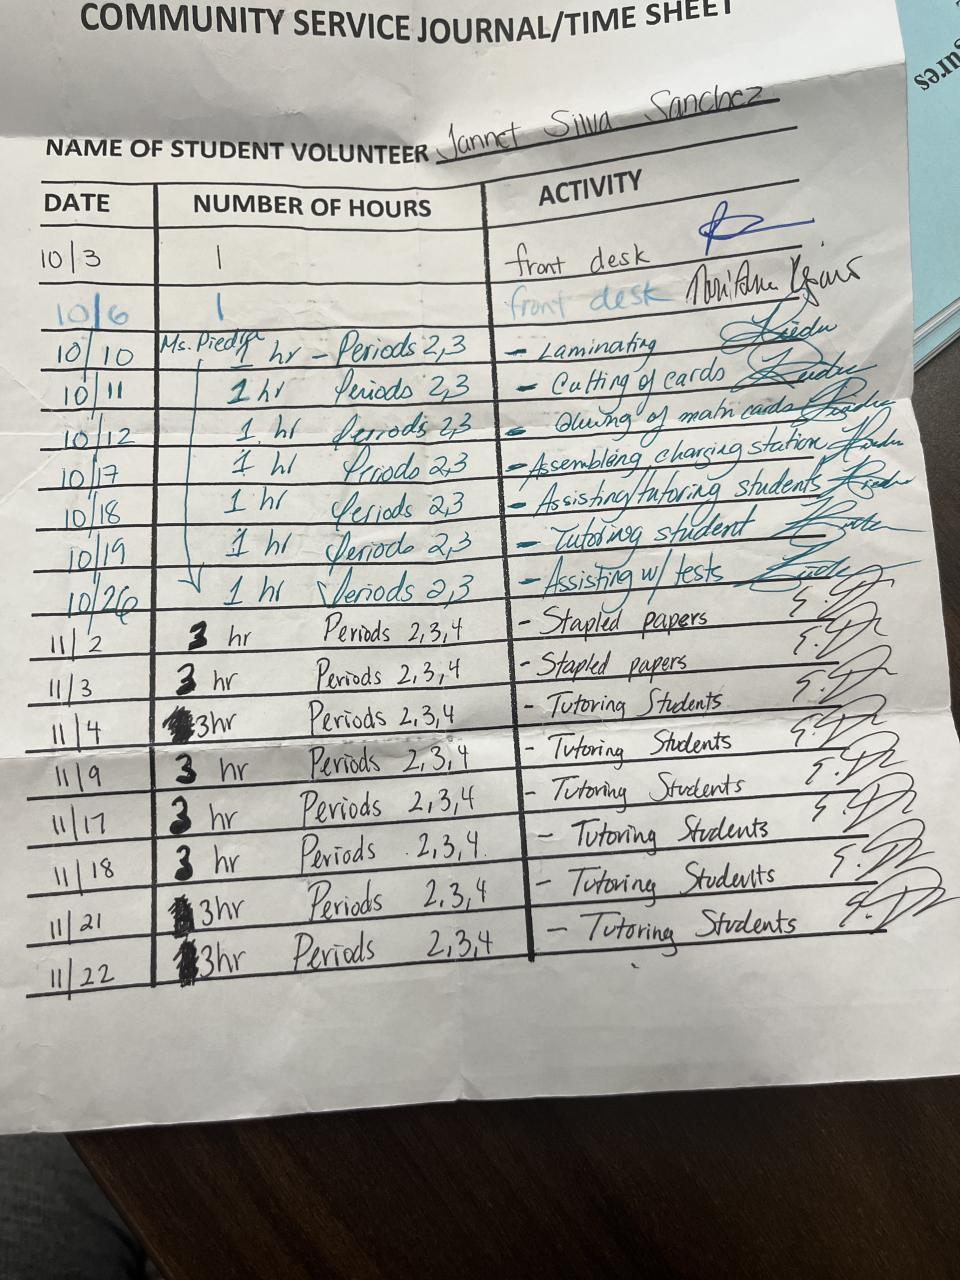 COMMUNITY SERVICE JOURNAL/TIME SHEET
NAME OF STUDENT VOLUNTEER Jannet Silva Sanchez
DATE NUMBER OF HOURS ACTIVITY
10/3 1 front desk
10/6 1 front desk
10/10 Ms. Piedra 1 hr - Periods 2,3 - Laminating
10/11 1 hr Periods 2,3 - Cutting of cards
10/12 1 hr Periods 2,3 - Gluing of math cards
10/17 1 hr Periods 2,3 - Assembling charging station
10/18 1 hr Periods 2,3 - Assisting/tutoring students
10/19 1 hr Periods 2,3 - Tutoring student
10/26 1 hr Periods 2,3 - Assisting w/ tests
11/2 3 hr Periods 2,3,4 - Stapled papers
11/3 3 hr Periods 2,3,4 - Stapled papers
11/4 3hr Periods 2,3,4 - Tutoring Students
11/9 3 hr Periods 2,3,4 - Tutoring Students
11/17 3 hr Periods 2,3,4 - Tutoring Students
11/18 3 hr Periods 2,3,4. - Tutoring Students
11/21 3hr Periods 2,3,4 - Tutoring Students
11/22 3hr Periods 2,3,4 - Tutoring Students